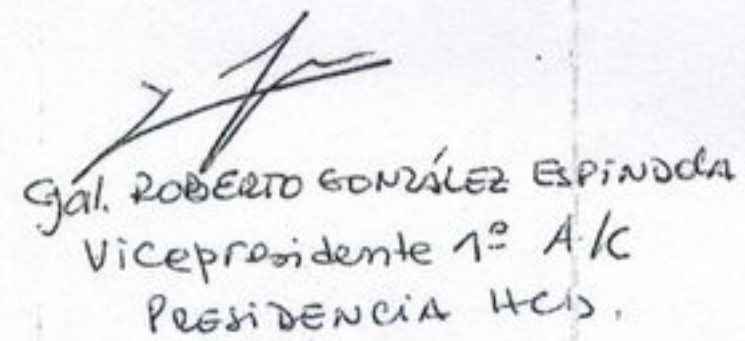 Cjal. ROBERTO GONZÁLEZ ESPINDOLA
Vicepresidente 1º A/C
PRESIDENCIA HCD.